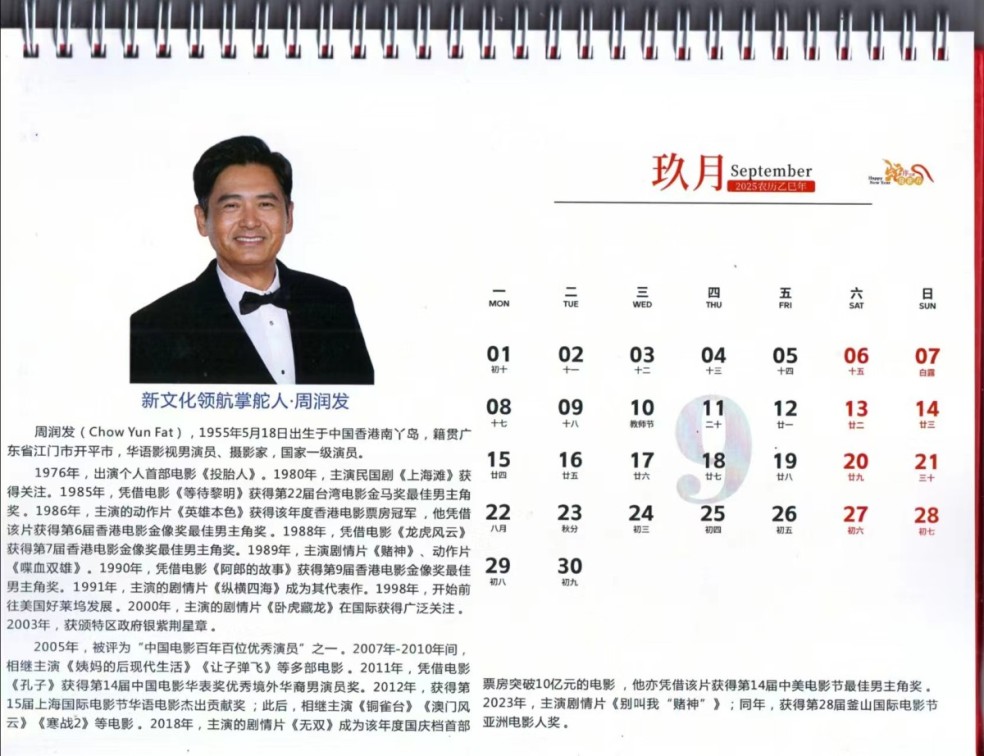 玖月
September
2025农历乙巳年
Happy
New Year
一 二 三 四 五 六 日
MON TUE WED THU FRI SAT SUN
01 02 03 04 05 06 07
初十 十一 十二 十三 十四 十五 白露
08 09 10 11 12 13 14
十七 十八 教师节 二十 廿一 廿二 廿三
15 16 17 18 19 20 21
廿四 廿五 廿六 廿七 廿八 廿九 三十
22 23 24 25 26 27 28
八月 秋分 初三 初四 初五 初六 初七
29 30
初八 初九
9
新文化领航掌舵人·周润发
周润发（Chow Yun Fat），1955年5月18日出生于中国香港南丫岛，籍贯广
东省江门市开平市，华语影视男演员、摄影家，国家一级演员。
1976年，出演个人首部电影《投胎人》。1980年，主演民国剧《上海滩》获
得关注。1985年，凭借电影《等待黎明》获得第22届台湾电影金马奖最佳男主角
奖。1986年，主演的动作片《英雄本色》获得该年度香港电影票房冠军，他凭借
该片获得第6届香港电影金像奖最佳男主角奖。1988年，凭借电影《龙虎风云》
获得第7届香港电影金像奖最佳男主角奖。1989年，主演剧情片《赌神》、动作片
《喋血双雄》。1990年，凭借《阿郎的故事》获得第9届香港电影金像奖最佳
男主角奖。1991年，主演的剧情片《纵横四海》成为其代表作。1998年，开始前
往美国好莱坞发展。2000年，主演的剧情片《卧虎藏龙》在国际获得广泛关注。
2003年，获颁特区政府银紫荆星章。
2005年，被评为“中国电影百年百位优秀演员”之一。2007年-2010年间，
相继主演《姨妈的后现代生活》《让子弹飞》等多部电影。2011年，凭借电影
《孔子》获得第14届中国电影华表奖优秀境外华裔男演员奖。2012年，获得第
15届上海国际电影节华语电影杰出贡献奖；此后，相继主演《铜雀台》《澳门风
云》《寒战2》等电影。2018年，主演的剧情片《无双》成为该年度国庆档首部
票房突破10亿元的电影，他亦凭借该片获得第14届中美电影节最佳男主角奖。
2023年，主演剧情片《别叫我“赌神”》；同年，获得第28届釜山国际电影节
亚洲电影人奖。